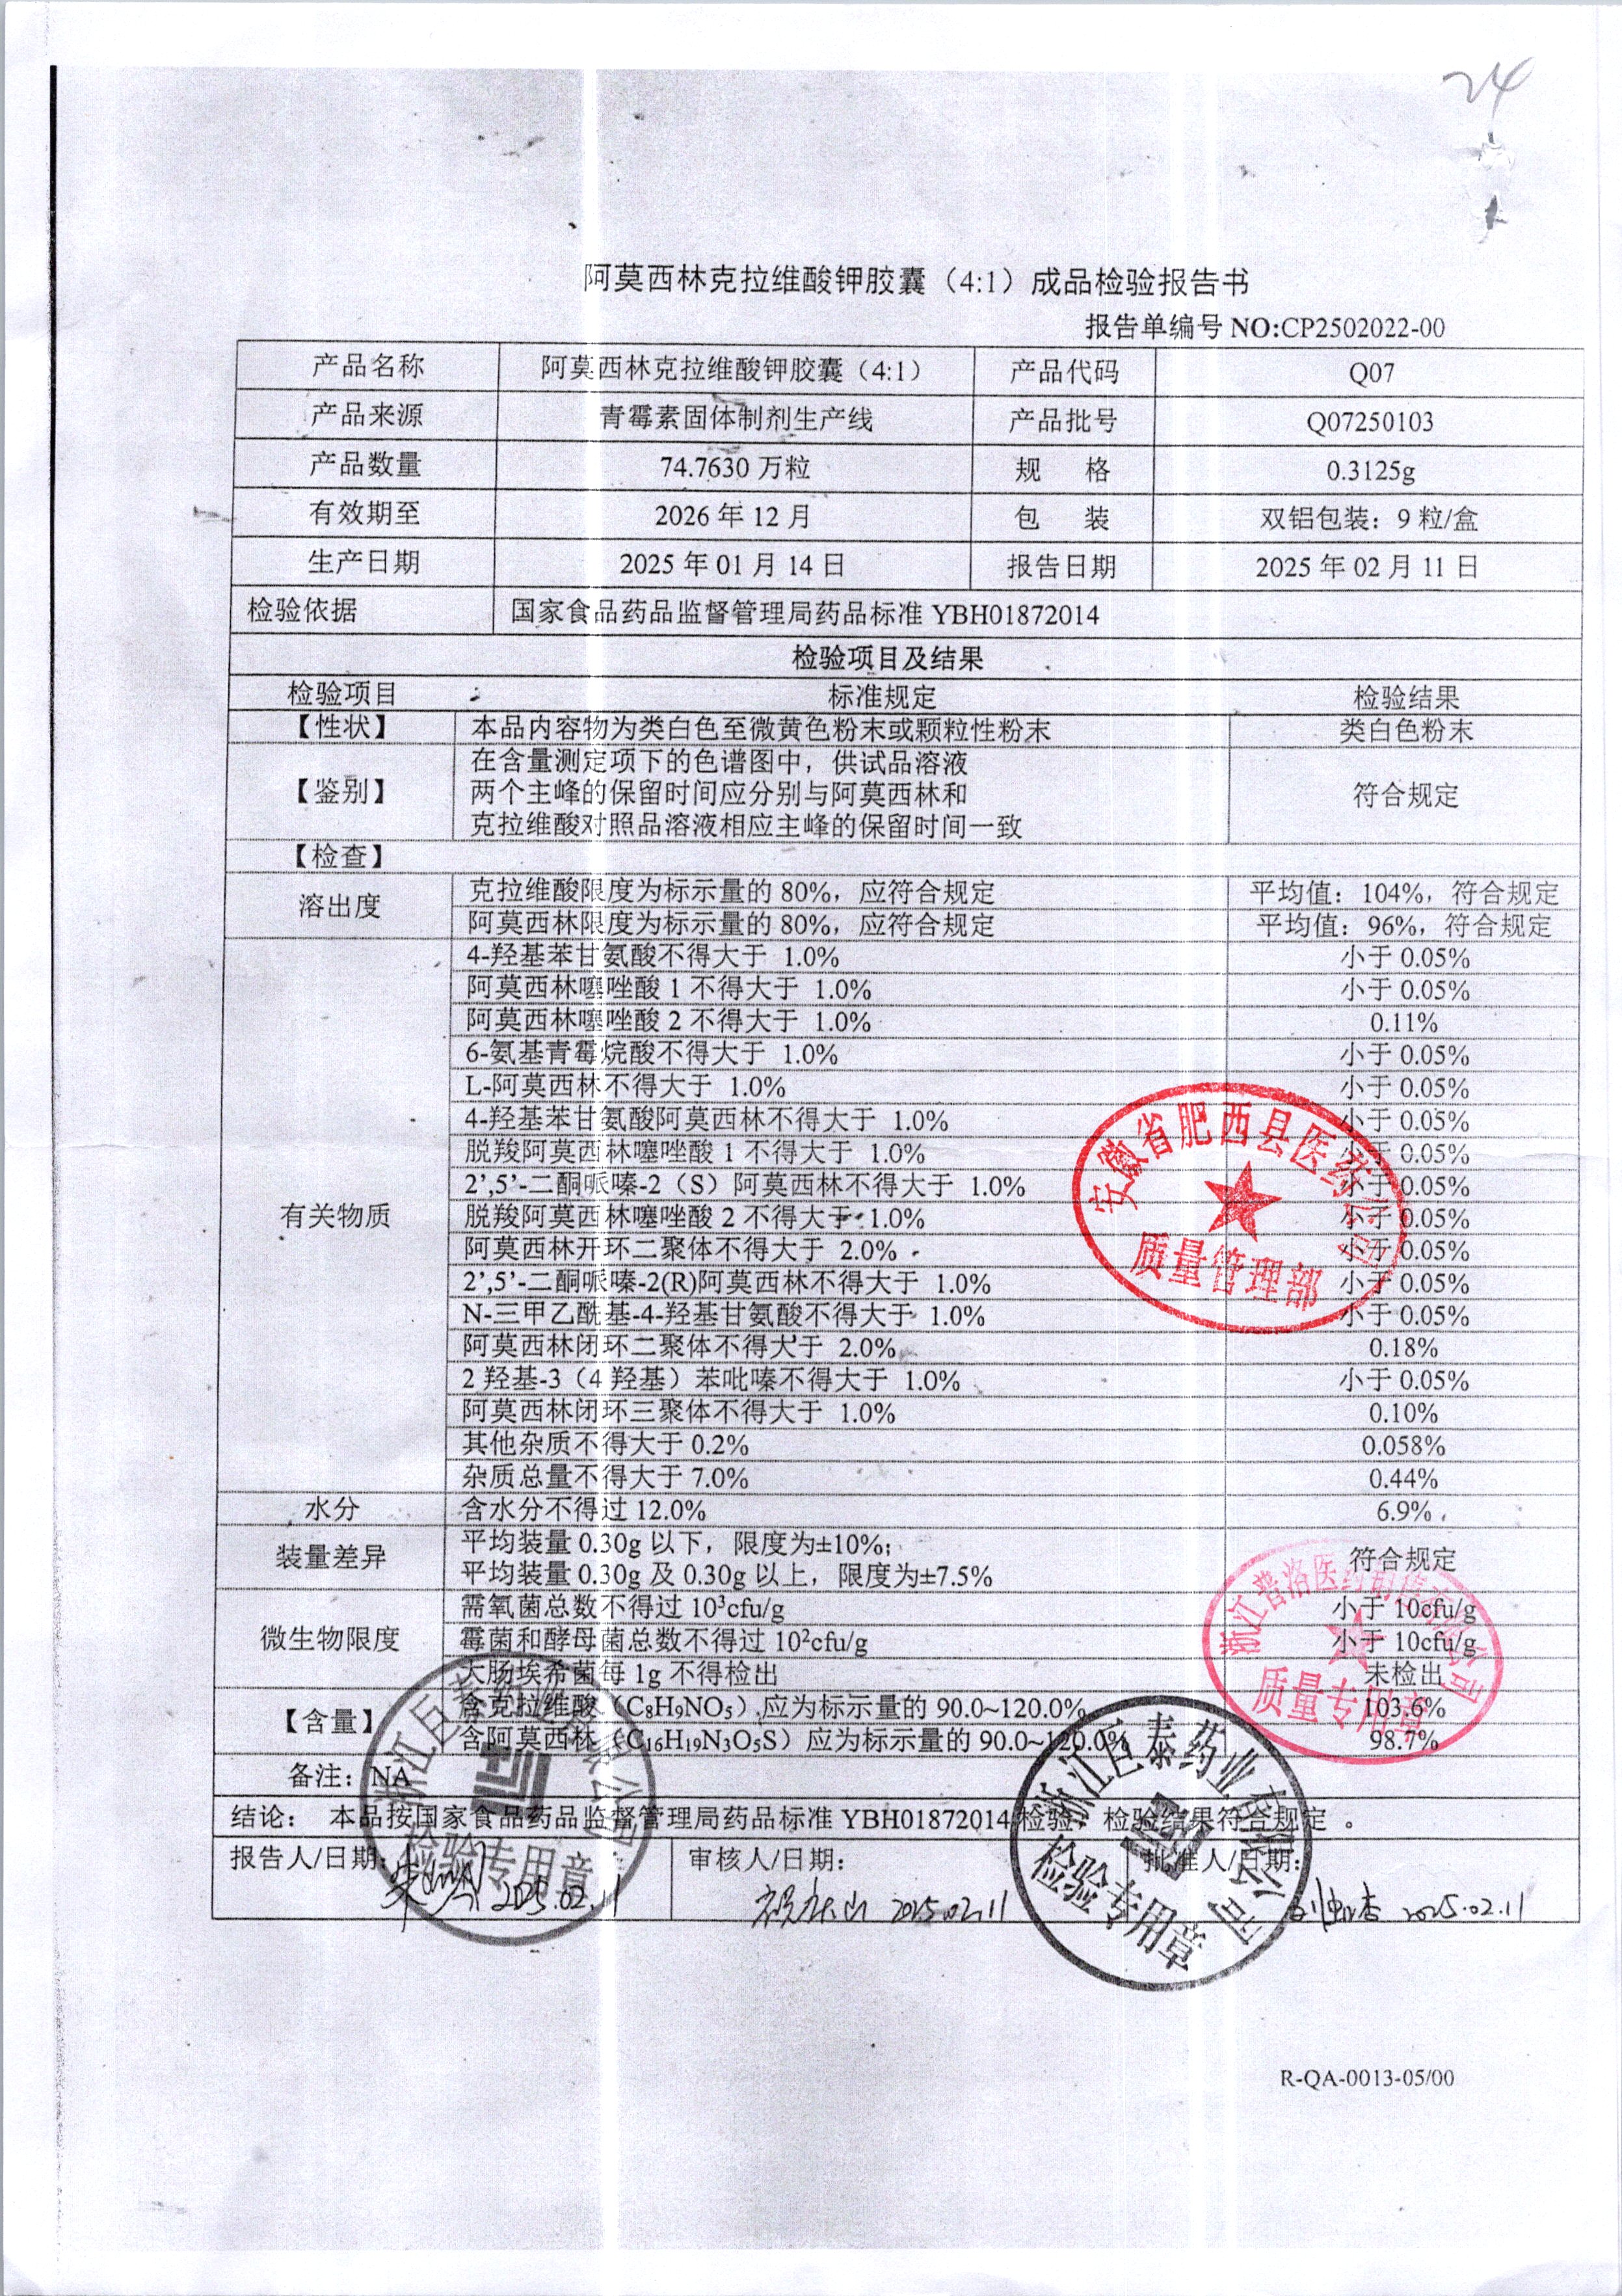 24
阿莫西林克拉维酸钾胶囊（4:1）成品检验报告书
报告单编号 NO:CP2502022-00
产品名称 阿莫西林克拉维酸钾胶囊（4:1） 产品代码 Q07
产品来源 青霉素固体制剂生产线 产品批号 Q07250103
产品数量 74.7630 万粒 规 格 0.3125g
有效期至 2026 年 12 月 包 装 双铝包装：9 粒/盒
生产日期 2025 年 01 月 14 日 报告日期 2025 年 02 月 11 日
检验依据 国家食品药品监督管理局药品标准 YBH01872014
检验项目及结果
检验项目 标准规定 检验结果
【性状】 本品内容物为类白色至微黄色粉末或颗粒性粉末 类白色粉末
在含量测定项下的色谱图中，供试品溶液
【鉴别】 两个主峰的保留时间应分别与阿莫西林和 符合规定
克拉维酸对照品溶液相应主峰的保留时间一致
【检查】
溶出度 克拉维酸限度为标示量的 80%，应符合规定 平均值：104%，符合规定
阿莫西林限度为标示量的 80%，应符合规定 平均值：96%，符合规定
4-羟基苯甘氨酸不得大于 1.0% 小于 0.05%
阿莫西林噻唑酸 1 不得大于 1.0% 小于 0.05%
阿莫西林噻唑酸 2 不得大于 1.0% 0.11%
6-氨基青霉烷酸不得大于 1.0% 小于 0.05%
L-阿莫西林不得大于 1.0% 小于 0.05%
4-羟基苯甘氨酸阿莫西林不得大于 1.0% 小于 0.05%
脱羧阿莫西林噻唑酸 1 不得大于 1.0% 小于 0.05%
2’,5’-二酮哌嗪-2（S）阿莫西林不得大于 1.0% 小于 0.05%
有关物质 脱羧阿莫西林噻唑酸 2 不得大于 1.0% 小于 0.05%
阿莫西林开环二聚体不得大于 2.0% 小于 0.05%
2’,5’-二酮哌嗪-2(R)阿莫西林不得大于 1.0% 小于 0.05%
N-三甲乙酰基-4-羟基甘氨酸不得大于 1.0% 小于 0.05%
阿莫西林闭环二聚体不得大于 2.0% 0.18%
2 羟基-3（4 羟基）苯吡嗪不得大于 1.0% 小于 0.05%
阿莫西林闭环三聚体不得大于 1.0% 0.10%
其他杂质不得大于 0.2% 0.058%
杂质总量不得大于 7.0% 0.44%
水分 含水分不得过 12.0% 6.9%
装量差异 平均装量 0.30g 以下，限度为±10%； 符合规定
平均装量 0.30g 及 0.30g 以上，限度为±7.5%
需氧菌总数不得过 10³cfu/g 小于 10cfu/g
微生物限度 霉菌和酵母菌总数不得过 10²cfu/g 小于 10cfu/g
大肠埃希菌每 1g 不得检出 未检出
【含量】 含克拉维酸（C₈H₉NO₅）应为标示量的 90.0~120.0% 103.6%
含阿莫西林（C₁₆H₁₉N₃O₅S）应为标示量的 90.0~120.0% 98.7%
备注：NA
结论： 本品按国家食品药品监督管理局药品标准 YBH01872014 检验，检验结果符合规定 。
报告人/日期: 2025.02.11 审核人/日期: 2025.02.11 批准人/日期: 2025.02.11
安徽省肥西县医药公司
质量管理部
质量专用章
浙江巨泰药业有限公司
检验专用章
浙江巨泰药业有限公司
检验专用章
R-QA-0013-05/00